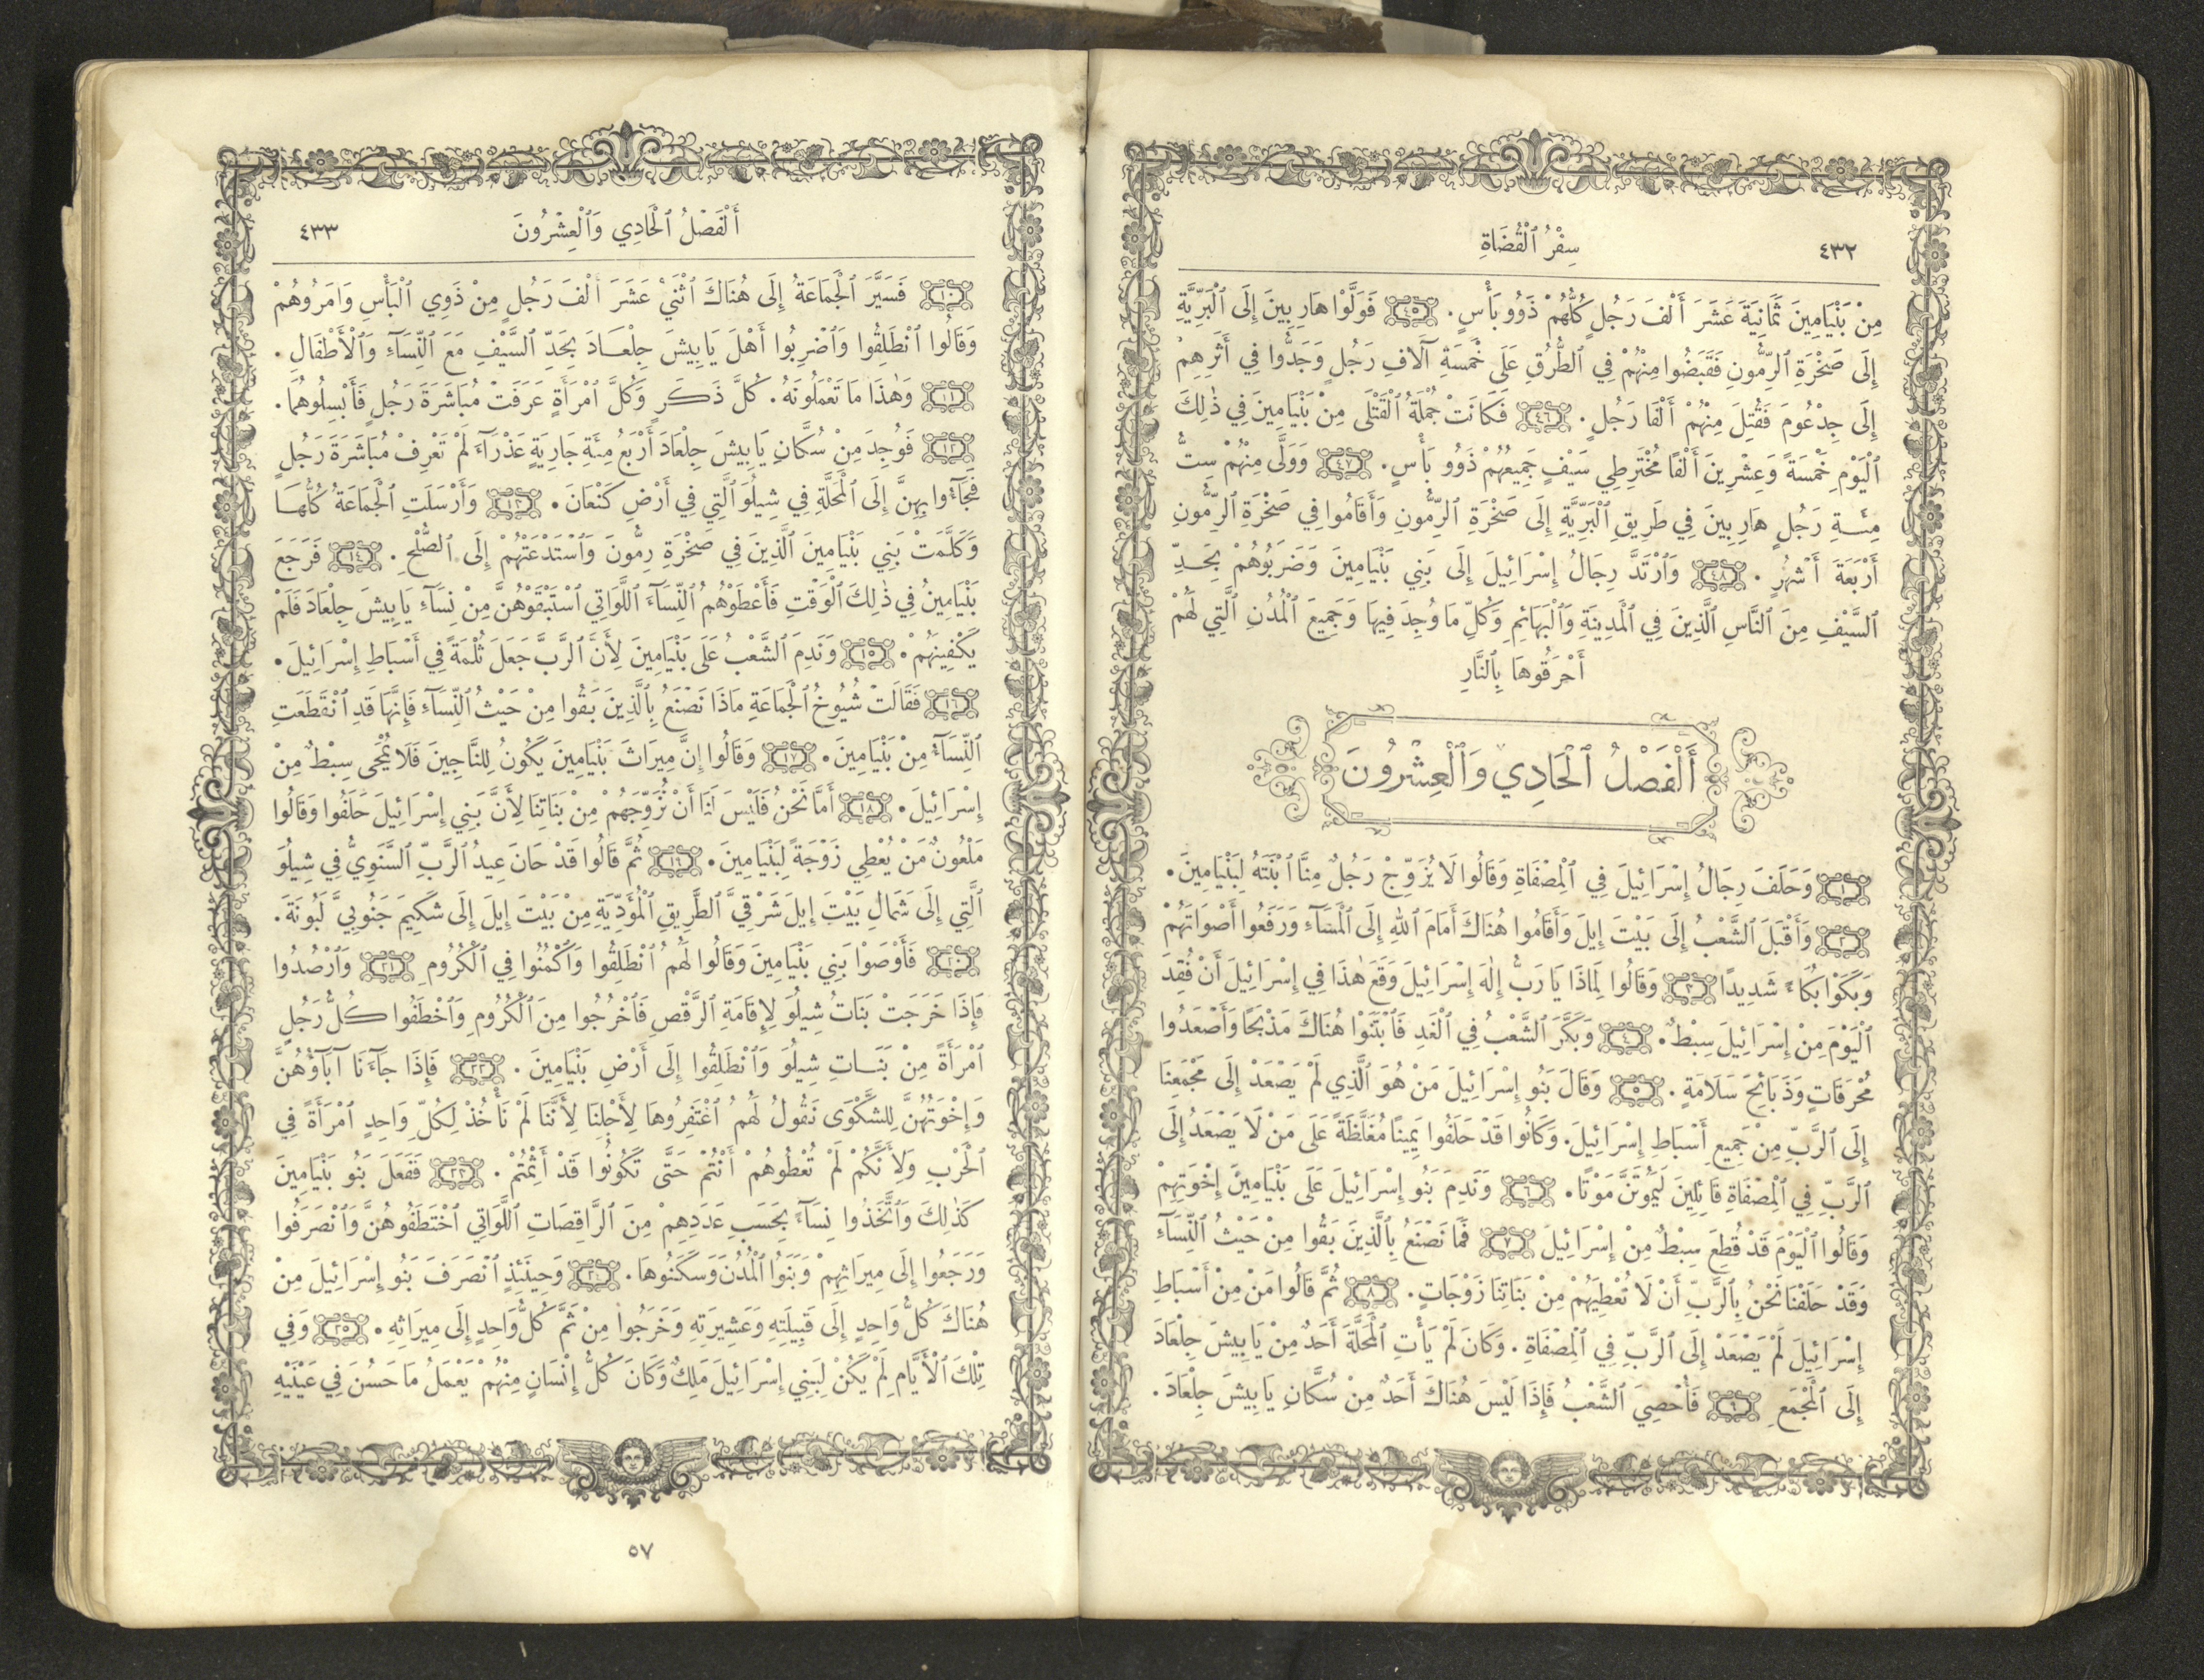 ٤٣٢
سِفْرُ ٱلْقُضَاةِ
مِنْ بَنْيَامِينَ ثَمَانِيَةَ عَشَرَ أَلْفَ رَجُلٍ كُلُّهُمْ ذَوُو بَأْسٍ. ٤٥ فَوَلَّوْا هَارِبِينَ إِلَى ٱلْبَرِّيَّةِ
إِلَى صَخْرَةِ ٱلرِّمُّونِ فَقَبَضُوا مِنْهُمْ فِي ٱلطُّرُقِ عَلَى خَمْسَةِ آلَافِ رَجُلٍ وَجَدُّوا فِي أَثَرِهِمْ
إِلَى جِدْعُومَ فَقُتِلَ مِنْهُمْ أَلْفَا رَجُلٍ. ٤٦ فَكَانَتْ جُمْلَةُ ٱلْقَتْلَى مِنْ بَنْيَامِينَ فِي ذٰلِكَ
ٱلْيَوْمِ خَمْسَةً وَعِشْرِينَ أَلْفًا مُخْتَرِطِي سَيْفٍ جَمِيعُهُمْ ذَوُو بَأْسٍ. ٤٧ وَوَلَّى مِنْهُمْ سِتُّ
مِئَةِ رَجُلٍ هَارِبِينَ فِي طَرِيقِ ٱلْبَرِّيَّةِ إِلَى صَخْرَةِ ٱلرِّمُّونِ وَأَقَامُوا فِي صَخْرَةِ ٱلرِّمُّونِ
أَرْبَعَةَ أَشْهُرٍ. ٤٨ وَٱرْتَدَّ رِجَالُ إِسْرَائِيلَ إِلَى بَنِي بَنْيَامِينَ وَضَرَبُوهُمْ بِحَدِّ
ٱلسَّيْفِ مِنَ ٱلنَّاسِ ٱلَّذِينَ فِي ٱلْمَدِينَةِ وَٱلْبَهَائِمِ وَكُلِّ مَا وُجِدَ فِيهَا وَجَمِيعَ ٱلْمُدُنِ ٱلَّتِي لَهُمْ
أَحْرَقُوهَا بِٱلنَّارِ
أَلْفَصْلُ ٱلْحَادِي وَٱلْعِشْرُونَ
١ وَحَلَفَ رِجَالُ إِسْرَائِيلَ فِي ٱلْمِصْفَاةِ وَقَالُوا لَا يُزَوِّجْ رَجُلٌ مِنَّا ٱبْنَتَهُ لِبَنْيَامِينَ.
٢ وَأَقْبَلَ ٱلشَّعْبُ إِلَى بَيْتَ إِيلَ وَأَقَامُوا هُنَاكَ أَمَامَ ٱللهِ إِلَى ٱلْمَسَآءِ وَرَفَعُوا أَصْوَاتَهُمْ
وَبَكَوْا بُكَآءً شَدِيدًا ٣ وَقَالُوا لِمَاذَا يَا رَبُّ إِلٰهَ إِسْرَائِيلَ وَقَعَ هٰذَا فِي إِسْرَائِيلَ أَنْ فُقِدَ
ٱلْيَوْمَ مِنْ إِسْرَائِيلَ سِبْطٌ. ٤ وَبَكَّرَ ٱلشَّعْبُ فِي ٱلْغَدِ فَٱبْتَنَوْا هُنَاكَ مَذْبَحًا وَأَصْعَدُوا
مُحْرَقَاتٍ وَذَبَائِحَ سَلَامَةٍ. ٥ وَقَالَ بَنُو إِسْرَائِيلَ مَنْ هُوَ ٱلَّذِي لَمْ يَصْعَدْ إِلَى مَجْمَعِنَا
إِلَى ٱلرَّبِّ مِنْ جَمِيعِ أَسْبَاطِ إِسْرَائِيلَ. وَكَانُوا قَدْ حَلَفُوا يَمِينًا مُغَلَّظَةً عَلَى مَنْ لَا يَصْعَدُ إِلَى
ٱلرَّبِّ فِي ٱلْمِصْفَاةِ قَائِلِينَ لَيَمُوتَنَّ مَوْتًا. ٦ وَنَدِمَ بَنُو إِسْرَائِيلَ عَلَى بَنْيَامِينَ إِخْوَتِهِمْ
وَقَالُوا ٱلْيَوْمَ قَدْ قُطِعَ سِبْطٌ مِنْ إِسْرَائِيلَ ٧ فَمَا نَصْنَعُ بِٱلَّذِينَ بَقُوا مِنْ حَيْثُ ٱلنِّسَآءِ
وَقَدْ حَلَفْنَا نَحْنُ بِٱلرَّبِّ أَنْ لَا نُعْطِيَهُمْ مِنْ بَنَاتِنَا زَوْجَاتٍ. ٨ ثُمَّ قَالُوا مَنْ مِنْ أَسْبَاطِ
إِسْرَائِيلَ لَمْ يَصْعَدْ إِلَى ٱلرَّبِّ فِي ٱلْمِصْفَاةِ. وَكَانَ لَمْ يَأْتِ ٱلْمَحَلَّةَ أَحَدٌ مِنْ يَابِيشَ جِلْعَادَ
إِلَى ٱلْمَجْمَعِ ٩ فَأُحْصِيَ ٱلشَّعْبُ فَإِذَا لَيْسَ هُنَاكَ أَحَدٌ مِنْ سُكَّانِ يَابِيشَ جِلْعَادَ.
أَلْفَصْلُ ٱلْحَادِي وَٱلْعِشْرُونَ
٤٣٣
١٠ فَسَيَّرَ ٱلْجَمَاعَةُ إِلَى هُنَاكَ ٱثْنَيْ عَشَرَ أَلْفَ رَجُلٍ مِنْ ذَوِي ٱلْبَأْسِ وَأَمَرُوهُمْ
وَقَالُوا ٱنْطَلِقُوا وَٱضْرِبُوا أَهْلَ يَابِيشَ جِلْعَادَ بِحَدِّ ٱلسَّيْفِ مَعَ ٱلنِّسَآءِ وَٱلْأَطْفَالِ.
١١ وَهٰذَا مَا تَعْمَلُونَهُ. كُلَّ ذَكَرٍ وَكُلَّ ٱمْرَأَةٍ عَرَفَتْ مُبَاشَرَةَ رَجُلٍ فَأَبْسِلُوهُمَا.
١٢ فَوُجِدَ مِنْ سُكَّانِ يَابِيشَ جِلْعَادَ أَرْبَعُ مِئَةِ جَارِيَةٍ عَذْرَآءَ لَمْ تَعْرِفْ مُبَاشَرَةَ رَجُلٍ
فَجَآءُوا بِهِنَّ إِلَى ٱلْمَحَلَّةِ فِي شِيلُوَ ٱلَّتِي فِي أَرْضِ كَنْعَانَ. ١٣ وَأَرْسَلَتِ ٱلْجَمَاعَةُ كُلُّهَا
وَكَلَّمَتْ بَنِي بَنْيَامِينَ ٱلَّذِينَ فِي صَخْرَةِ رِمُّونَ وَٱسْتَدْعَتْهُمْ إِلَى ٱلصُّلْحِ. ١٤ فَرَجَعَ
بَنْيَامِينُ فِي ذٰلِكَ ٱلْوَقْتِ فَأَعْطَوْهُمُ ٱلنِّسَآءَ ٱللَّوَاتِي ٱسْتَبْقَوْهُنَّ مِنْ نِسَآءِ يَابِيشَ جِلْعَادَ فَلَمْ
يَكْفِينَهُمْ. ١٥ وَنَدِمَ ٱلشَّعْبُ عَلَى بَنْيَامِينَ لِأَنَّ ٱلرَّبَّ جَعَلَ ثُلْمَةً فِي أَسْبَاطِ إِسْرَائِيلَ.
١٦ فَقَالَتْ شُيُوخُ ٱلْجَمَاعَةِ مَاذَا نَصْنَعُ بِٱلَّذِينَ بَقُوا مِنْ حَيْثُ ٱلنِّسَآءِ فَإِنَّهَا قَدِ ٱنْقَطَعَتِ
ٱلنِّسَآءُ مِنْ بَنْيَامِينَ. ١٧ وَقَالُوا إِنَّ مِيرَاثَ بَنْيَامِينَ يَكُونُ لِلنَّاجِينَ فَلَا يُمْحَى سِبْطٌ مِنْ
إِسْرَائِيلَ. ١٨ أَمَّا نَحْنُ فَلَيْسَ لَنَا أَنْ نُزَوِّجَهُمْ مِنْ بَنَاتِنَا لِأَنَّ بَنِي إِسْرَائِيلَ حَلَفُوا وَقَالُوا
مَلْعُونٌ مَنْ يُعْطِي زَوْجَةً لِبَنْيَامِينَ. ١٩ ثُمَّ قَالُوا قَدْ حَانَ عِيدُ ٱلرَّبِّ ٱلسَّنَوِيُّ فِي شِيلُوَ
ٱلَّتِي إِلَى شَمَالِ بَيْتَ إِيلَ شَرْقِيَّ ٱلطَّرِيقِ ٱلْمُؤَدِّيَةِ مِنْ بَيْتَ إِيلَ إِلَى شَكِيمَ جَنُوبِيَّ لَبُونَةَ.
٢٠ فَأَوْصَوْا بَنِي بَنْيَامِينَ وَقَالُوا لَهُمُ ٱنْطَلِقُوا وَٱكْمُنُوا فِي ٱلْكُرُومِ ٢١ وَٱرْصُدُوا
فَإِذَا خَرَجَتْ بَنَاتُ شِيلُوَ لِإِقَامَةِ ٱلرَّقْصِ فَٱخْرُجُوا مِنَ ٱلْكُرُومِ وَٱخْطَفُوا كُلُّ رَجُلٍ
ٱمْرَأَةً مِنْ بَنَاتِ شِيلُوَ وَٱنْطَلِقُوا إِلَى أَرْضِ بَنْيَامِينَ. ٢٢ فَإِذَا جَآءَنَا آبَآؤُهُنَّ
وَإِخْوَتُهُنَّ لِلشَّكْوَى نَقُولُ لَهُمُ ٱغْتَفِرُوهَا لِأَجْلِنَا لِأَنَّنَا لَمْ نَأْخُذْ لِكُلِّ وَاحِدٍ ٱمْرَأَةً فِي
ٱلْحَرْبِ وَلِأَنَّكُمْ لَمْ تُعْطُوهُمْ أَنْتُمْ حَتَّى تَكُونُوا قَدْ أَثِمْتُمْ. ٢٣ فَفَعَلَ بَنُو بَنْيَامِينَ
كَذٰلِكَ وَٱتَّخَذُوا نِسَآءً بِحَسَبِ عَدَدِهِمْ مِنَ ٱلرَّاقِصَاتِ ٱللَّوَاتِي ٱخْتَطَفُوهُنَّ وَٱنْصَرَفُوا
وَرَجَعُوا إِلَى مِيرَاثِهِمْ وَبَنَوُا ٱلْمُدُنَ وَسَكَنُوهَا. ٢٤ وَحِينَئِذٍ ٱنْصَرَفَ بَنُو إِسْرَائِيلَ مِنْ
هُنَاكَ كُلُّ وَاحِدٍ إِلَى قَبِيلَتِهِ وَعَشِيرَتِهِ وَخَرَجُوا مِنْ ثَمَّ كُلُّ وَاحِدٍ إِلَى مِيرَاثِهِ. ٢٥ وَفِي
تِلْكَ ٱلْأَيَّامِ لَمْ يَكُنْ لِبَنِي إِسْرَائِيلَ مَلِكٌ وَكَانَ كُلُّ إِنْسَانٍ مِنْهُمْ يَعْمَلُ مَا حَسُنَ فِي عَيْنَيْهِ
٥٧